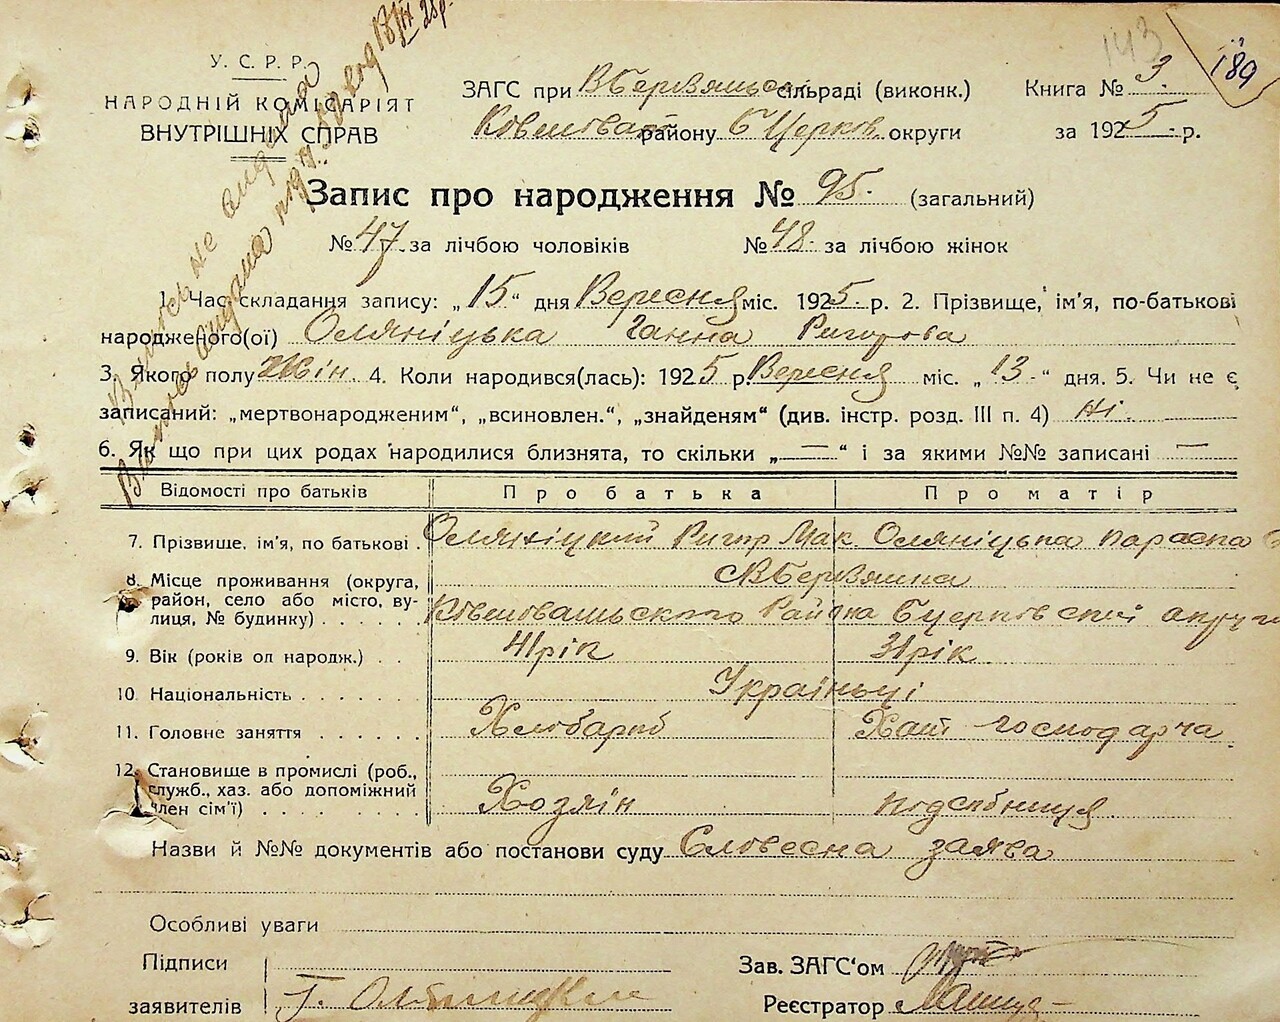 143
189
У. С. Р. Р.
НАРОДНІЙ КОМІСАРІЯТ
ВНУТРІШНІХ СПРАВ
ЗАГС при В Берем сільраді (виконк.)
району Б Церков округи
Книга № 3.
за 1925 р.
Запис про народження № 95. (загальний)
№ 47 за лічбою чоловіків № 48. за лічбою жінок
1. Час складання запису: „15“ дня Вересня міс. 1925. р. 2. Прізвище, ім'я, по-батькові
народженого(ої) Оляніцька Ганна Ригорова
3. Якого полу Жін. 4. Коли народився(лась): 1925 р. Вересня міс. „13.“ дня. 5. Чи не є
записаний: „мертвонародженим“, „всиновлен.“, „знайденям“ (див. інстр. розд. III п. 4) Ні.
6. Як що при цих родах народилися близнята, то скільки „—“ і за якими №№ записані —
Відомості про батьків Про батька Про матір
7. Прізвище, ім'я, по батькові . Оляніцкий Ригор Мак Оляніцька Параска
8. Місце проживання (округа,
район, село або місто, ву-
лиця, № будинку) . . . . . Района Бцерковської округи
9. Вік (років од народж.) . . 41 рік 31 рік
10. Національність . . . . . . Українці
11. Головне заняття . . . . . . Хлібароб Хат господарча
12. Становище в промислі (роб.,
служб., хаз. або допоміжний
член сім'ї) . . . . . . . . Хозяїн подсобниця
Назви й №№ документів або постанови суду Словесна заява
Особливі уваги
Підписи
заявителів
Зав. ЗАГС'ом
Реєстратор